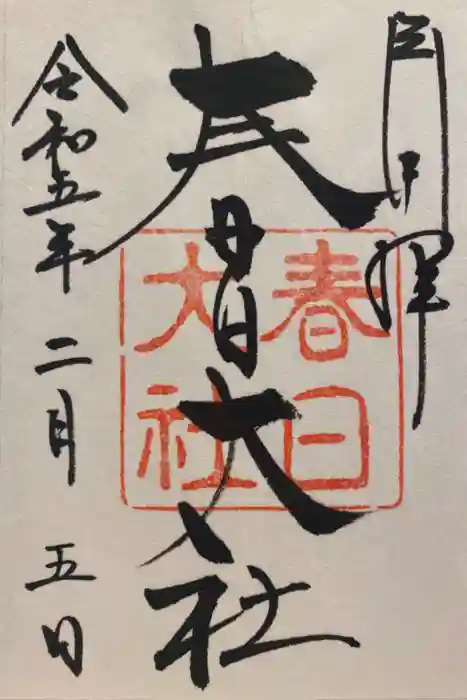 奉拝
春日大社
春日
大社
令和五年二月五日